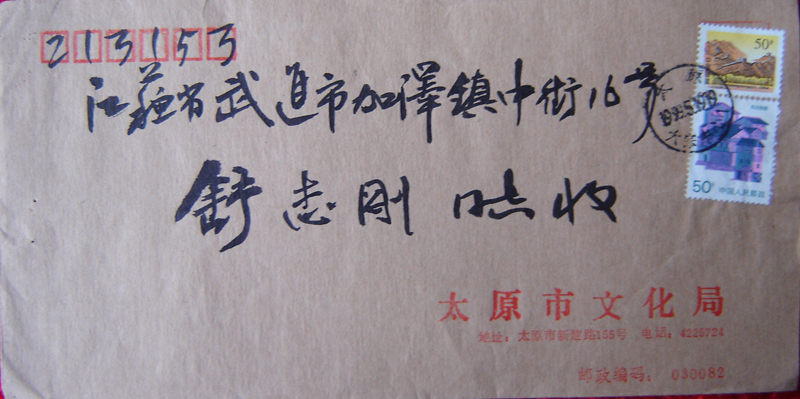 213153
江苏省武进市加泽镇中街16号
舒志刚 同志收
50分
50分
中国人民邮政
太原市文化局
地址：太原市新建路155号 电话：4225724
邮政编码：030082